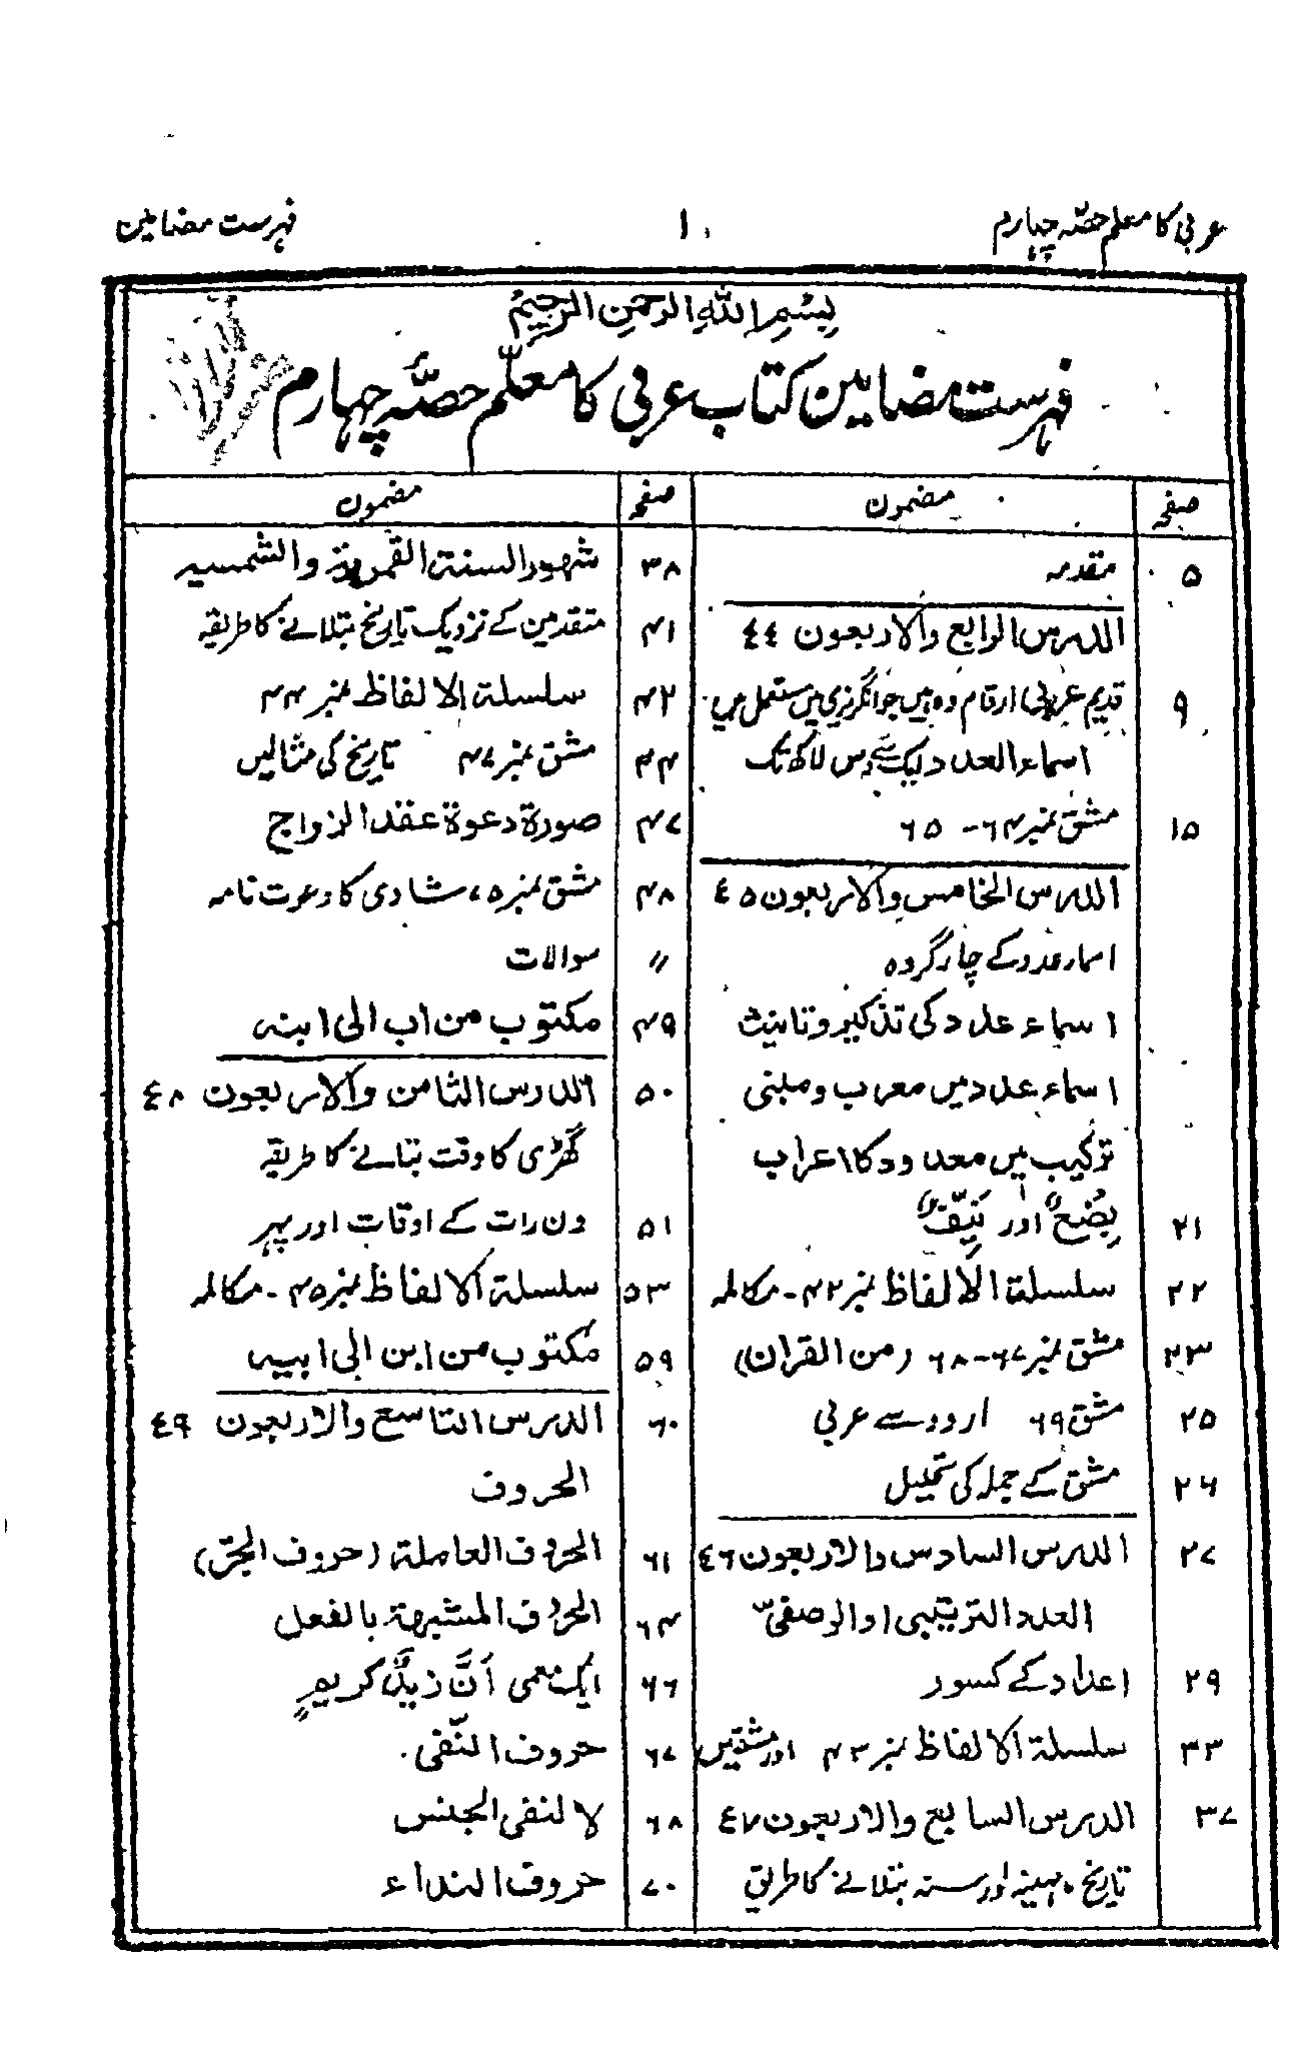 عربی کا معلم حصہ چہارم
۱
فہرست مضامین
بِسْمِ اللّٰہِ الرحمٰنِ الرحیمِ
فہرست مضامین کتاب عربی کا معلّم حصّہ چہارم
صفحہ مضمون
۵ مقدمہ
الدرس الرابع والاربعون ٤٤
۹ قدیم عربی ارقام وہ ہیں جو انگریزی میں مستعمل ہیں
اسماء العدد ایک سے دس لاکھ تک
۱۵ مشق نمبر ۶۴ - ۶۵
الدرس الخامس والاربعون ٤٥
اسماء عدد کے چار گروہ
اسماء عدد کی تذکیر و تانیث
اسماء عدد میں معرب و مبنی
ترکیب میں معدود کا اعراب
۲۱ بِضْعٌ اور نَیِّفٌ
۲۲ سلسلۃ الالفاظ نمبر ۴۲ - مکالمہ
۲۳ مشق نمبر ۶۷ - ۶۸ (من القران)
۲۵ مشق ۶۹ اردو سے عربی
۲۶ مشق کے جملہ کی تحلیل
۲۷ الدرس السادس والاربعون ٤٦
العدد الترتیبی او الوصفیّ
۲۹ اعداد کے کسور
۳۳ سلسلۃ الالفاظ نمبر ۴۳ اور مشقیں
۳۷ الدرس السابع والاربعون ٤٧
تاریخ، مہینہ اور سنہ بتلانے کا طریق
صفحہ مضمون
۳۸ شہور السنۃ القمریۃ والشمسیہ
۴۱ متقدمین کے نزدیک تاریخ بتلانے کا طریقہ
۴۲ سلسلۃ الالفاظ نمبر ۴۴
۴۴ مشق نمبر ۷۴ تاریخ کی مثالیں
۴۷ صورۃ دعوۃ عقد الزواج
۴۸ مشق نمبر ۷۵ شادی کا دعوت نامہ
〃 سوالات
۴۹ مکتوب من اب الی ابنہ
۵۰ الدرس الثامن والاربعون ٤٨
گھڑی کا وقت بتانے کا طریقہ
۵۱ دن رات کے اوقات اور پہر
۵۳ سلسلۃ الالفاظ نمبر ۴۵ - مکالمہ
۵۹ مکتوب من ابن الی ابیہ
۶۰ الدرس التاسع والاربعون ٤٩
الحروف
۶۱ الحروف العاملۃ (حروف الجرّ)
۶۴ الحروف المشبہۃ بالفعل
۶۶ ایک معمی اَنَّ زیدٌ کریمٍ
۶۷ حروف النّفی
۶۸ لا لنفی الجنس
۷۰ حروف النداء